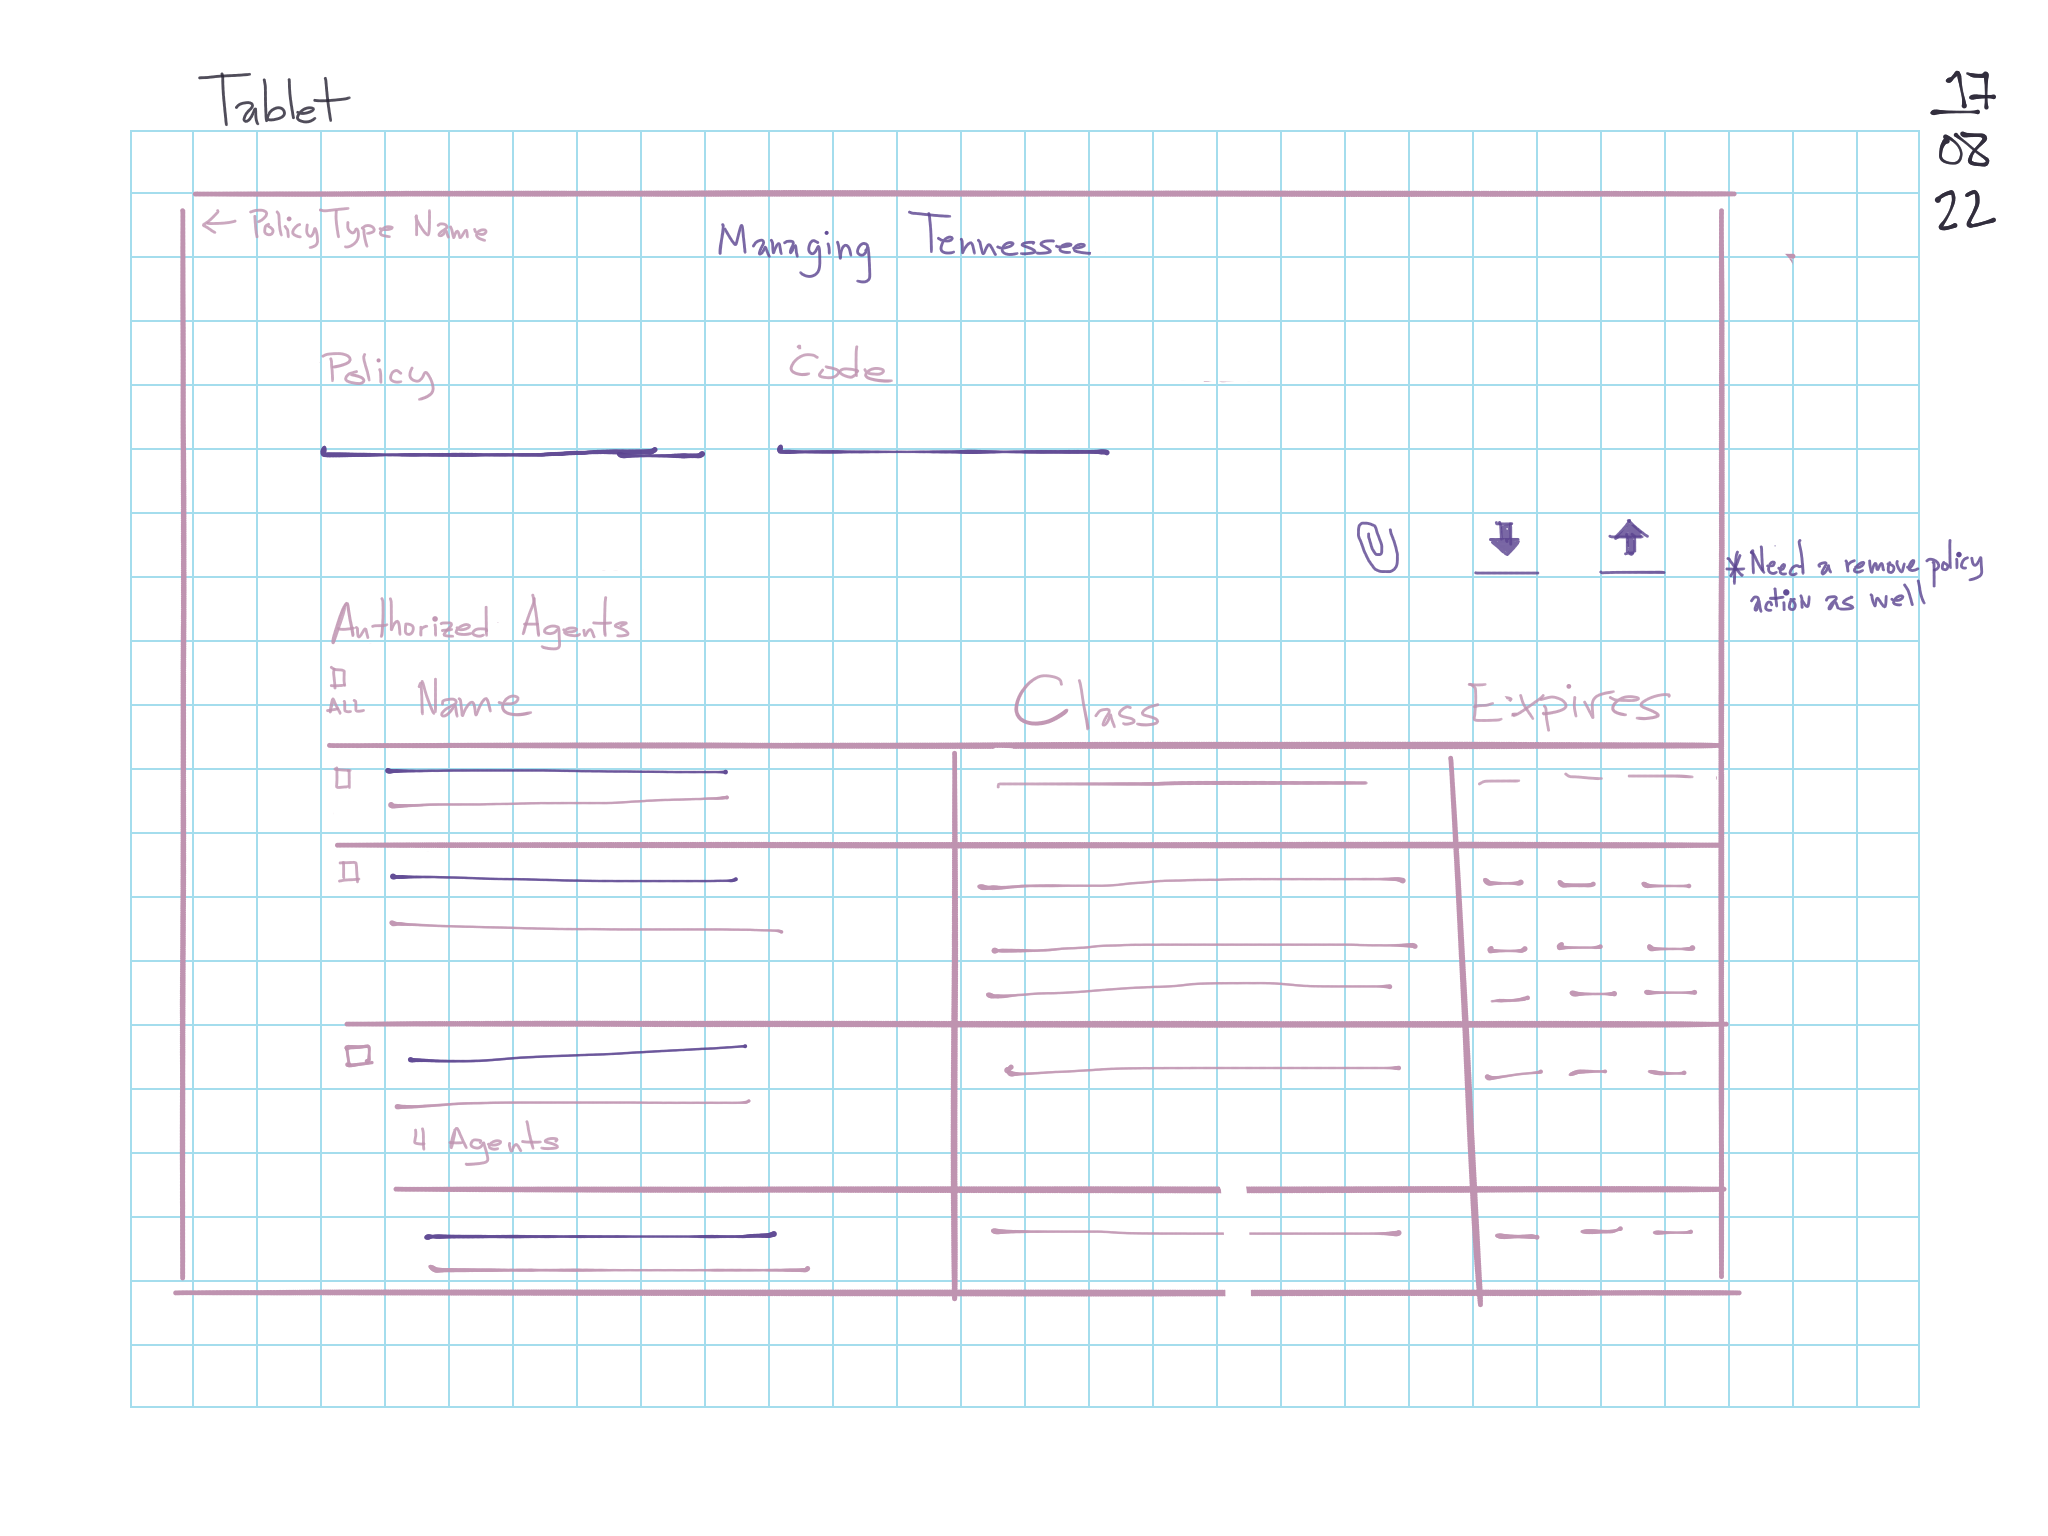 Tablet
17
08
22
← Policy Type Name
Managing Tennessee
Policy
Code
* Need a remove policy
action as well
Authorized Agents
ALL
Name
Class
Expires
4 Agents